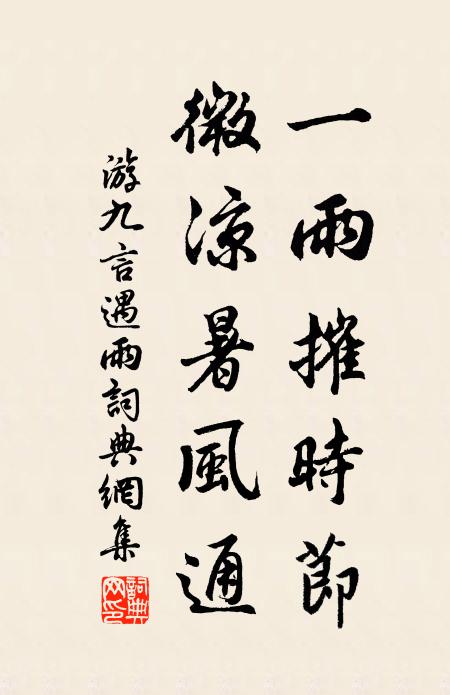 一雨摧時節
微涼暑風通
游九言遇雨詞典網集
詞典
网印